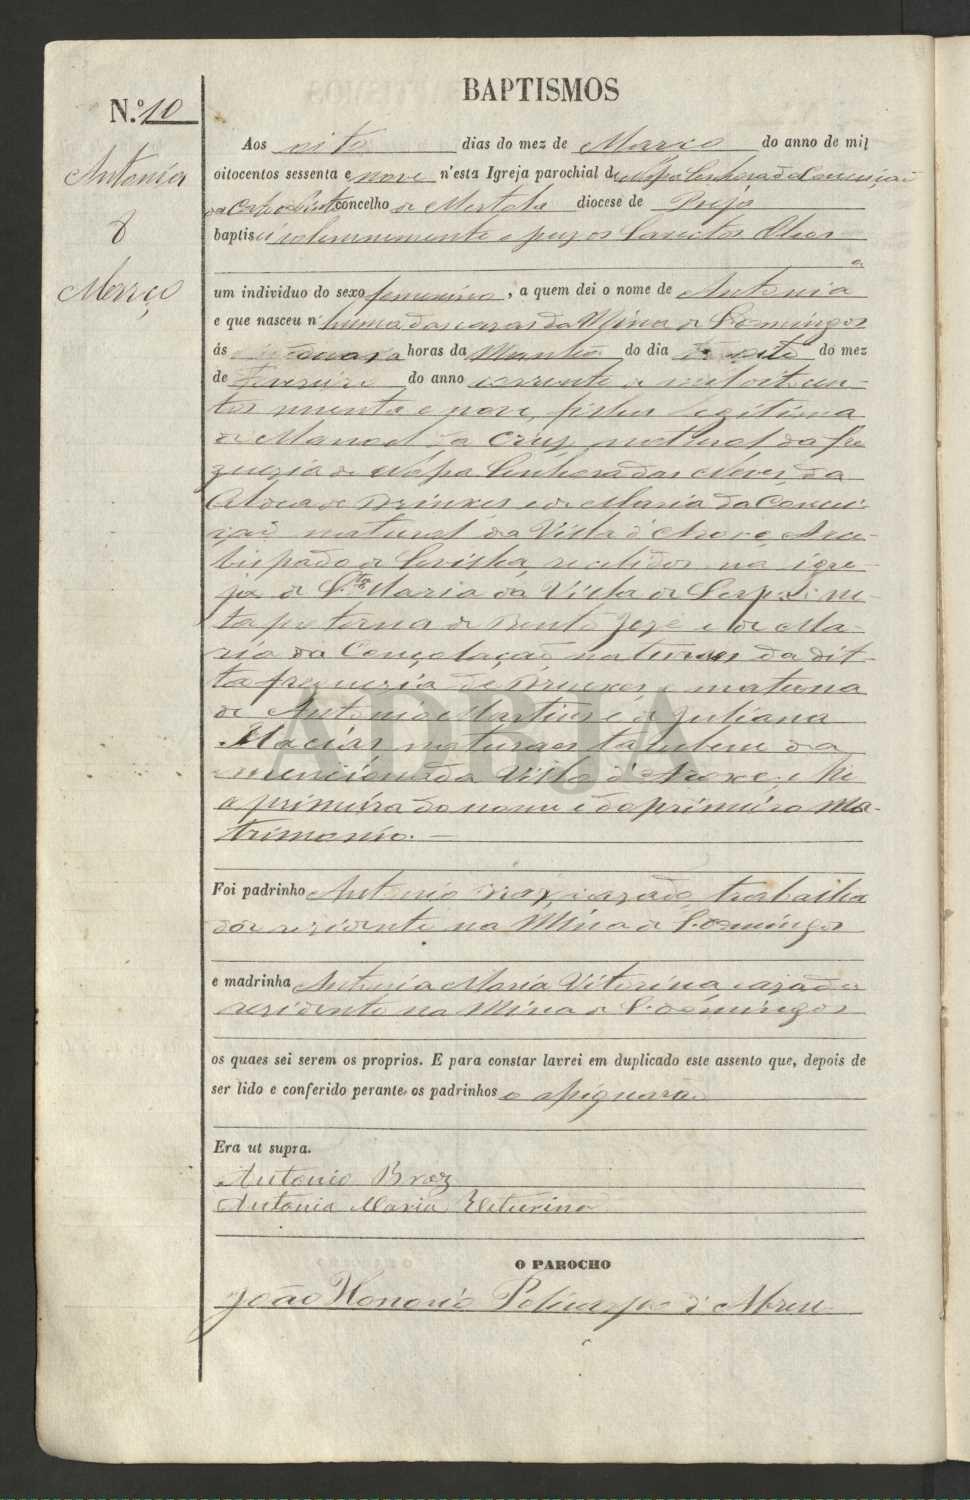 BAPTISMOS
N.º 10
Antonia
8
Março
Aos oito dias do mez de Março do anno de mil
oitocentos sessenta e nove n'esta Igreja parochial de Nossa Senhora da Conceição
da Corte do Pinto concelho de Mertola diocese de Beja
baptisei solemnemente e puz os Sanctos Oleos
a
um individuo do sexo femenino, a quem dei o nome de Antonia
e que nasceu n'huma das cazas da Mina de S. Domingos
ás horas da Manhã do dia do mez
de Fevereiro do anno corrente de mil oitocen-
tos secenta e nove, filha legitima
de Manoel da Cruz, natural da fre
guezia de Nossa Senhora das Neves da
Aldea de Brinxes e de Maria da Concei-
ção natural da Villa d'Aroxe Arce-
bispado de Sevilha, recebidos na igre-
ja de S.ta Maria da Villa de Serpa: ne-
ta paterna de Bento Jozé e de Ma-
ria da Conçolação naturaes da dit-
ta freguezia de Brinxes e materna
de Antonio Martins e de Juliana
Macias naturaes tambem da
mencionada Villa d'Aroxe, e he
a primeira do nome e do primeiro Ma-
trimonio. —
Foi padrinho Antonio Braz, cazado, trabalha
dor rezidente na Mina de S. Domingos
e madrinha Antonia Maria Vitorina cazada
rezidente na Mina de S. Domingos
os quaes sei serem os proprios. E para constar lavrei em duplicado este assento que, depois de
ser lido e conferido perante os padrinhos o assignarão
Era ut supra.
Antonio Braz
Antonia Maria
O PAROCHO
João Honorio Policarpo d'Abreu
ADBJA